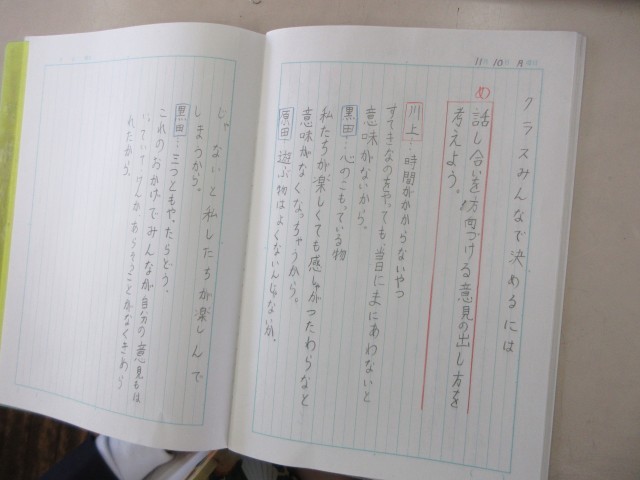 11月10日月曜日
クラスみんなで決めるには
め
話し合いを方向づける意見の出し方を
考えよう。
川上…時間がかからないやつ
すてきなのをやっても当日にまにあわないと
意味がないから。
黒田…心のこもっている物
私たちが楽しくても感しゃがつたわらないと
意味がなくなっちゃうから。
原田 遊ぶ物はよくないんじゃないか、
じゃないと私したちが楽しんで
しまうから。
黒田…三つともやったらどう、
これのおかげでみんなが自分の意見もは
いっていてけんかあらそうことがなくきめら
れたから、